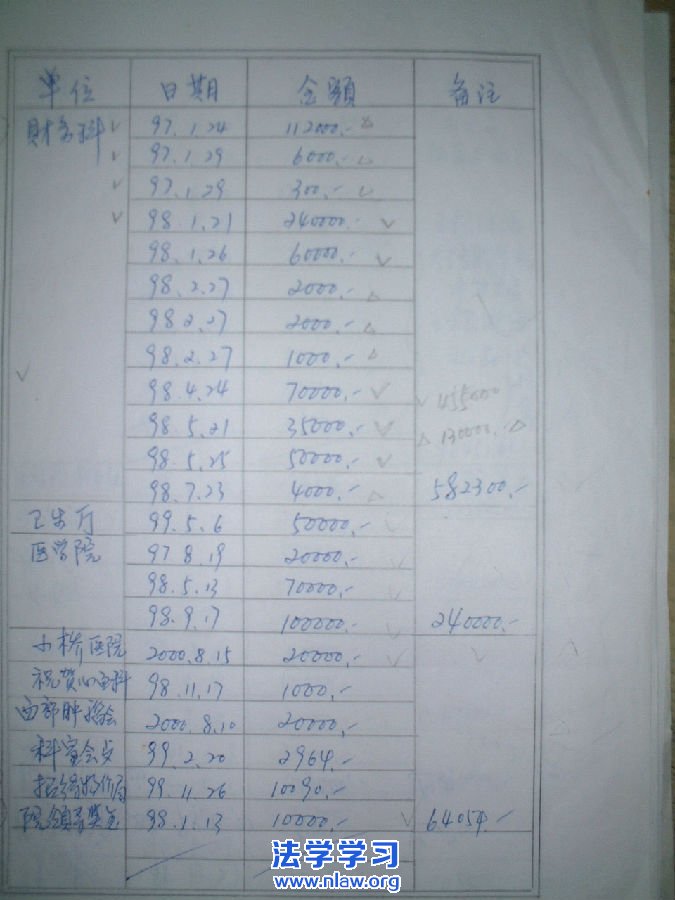 单位 日期 金额 备注
财务科 √ 97.1.24 112000.- △
√ 97.1.29 6000.- △
√ 97.1.29 300.- △
√ 98.1.21 240000.- √
98.1.26 60000.- √
98.2.27 2000.- △
98.2.27 2000.- △
98.2.27 1000.- △
√ 98.4.24 70000.- √ √ 455000
98.5.21 35000.- √ △ 130000.- △
98.5.25 50000.- √
98.7.23 4000.- △ 582300.-
卫生厅 99.5.6 50000.- √
医学院 97.8.19 20000.- √
98.5.13 70000.- √
98.9.17 100000.- √ 240000.-
小桥医院 2000.8.15 20000.- √ √
祝贺心血科 98.11.17 1000.-
西部肿瘤会 2000.8.10 20000.-
科室会点 99.2.20 2964.-
招待物价局 99.11.26 10090.-
院领导奖金 98.1.13 10000.- √ 64054.-
法学学习
www.nlaw.org